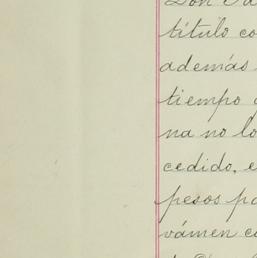 Don
título co
además
tiempo
na no lo
cedido, e
pesos pa
vámen co